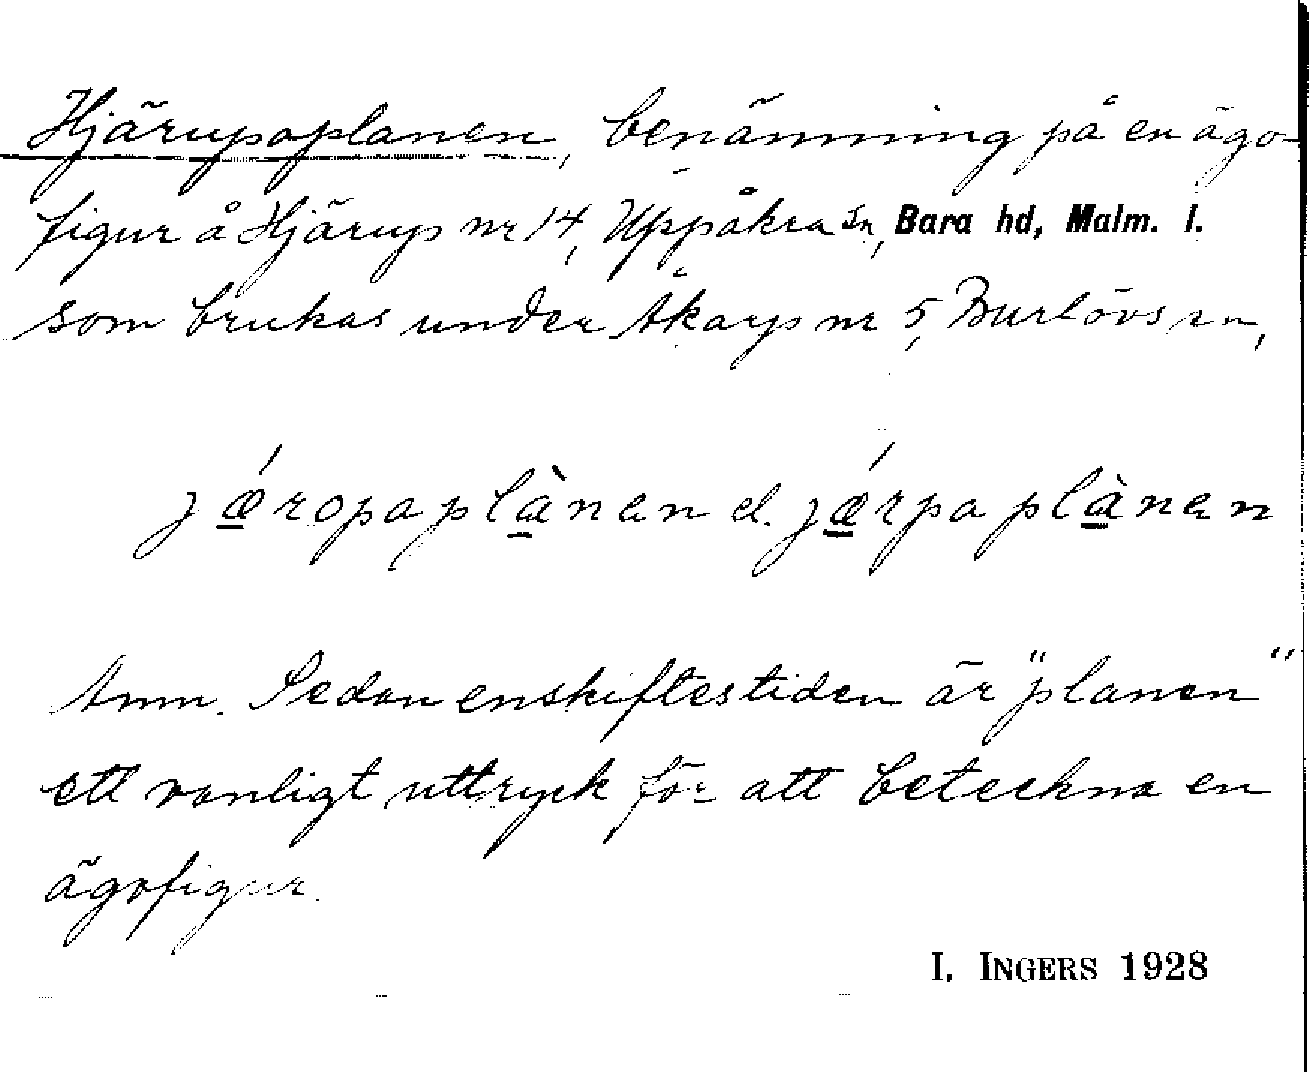 Hjärupaplanen, benämning på en ägo-
figur å Hjärup nr 14, Uppåkra sn, Bara hd, Malm. l.
som brukas under Åkarp nr 5, Burlövs sn,
jǽropaplànen el. jǽrpaplànen
Anm. Sedan enskiftestiden är "planen"
ett vanligt uttryck för att beteckna en
ägofigur.
I. INGERS 1928